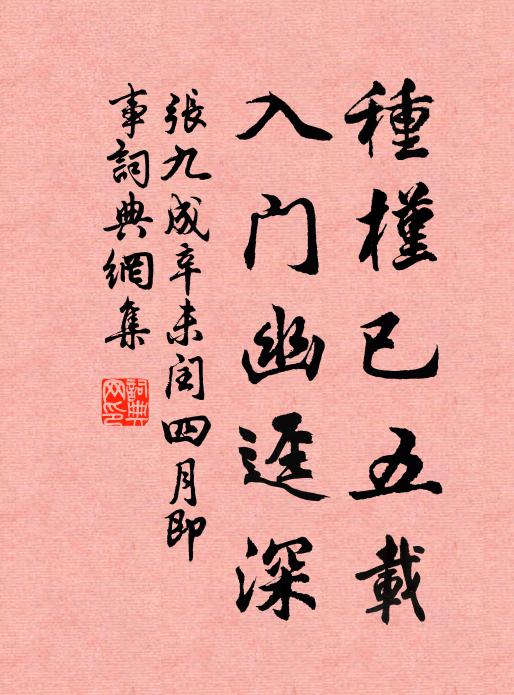 種槿已五載
入門幽逕深
張九成辛未閏四月即
事詞典網集
詞典
网印